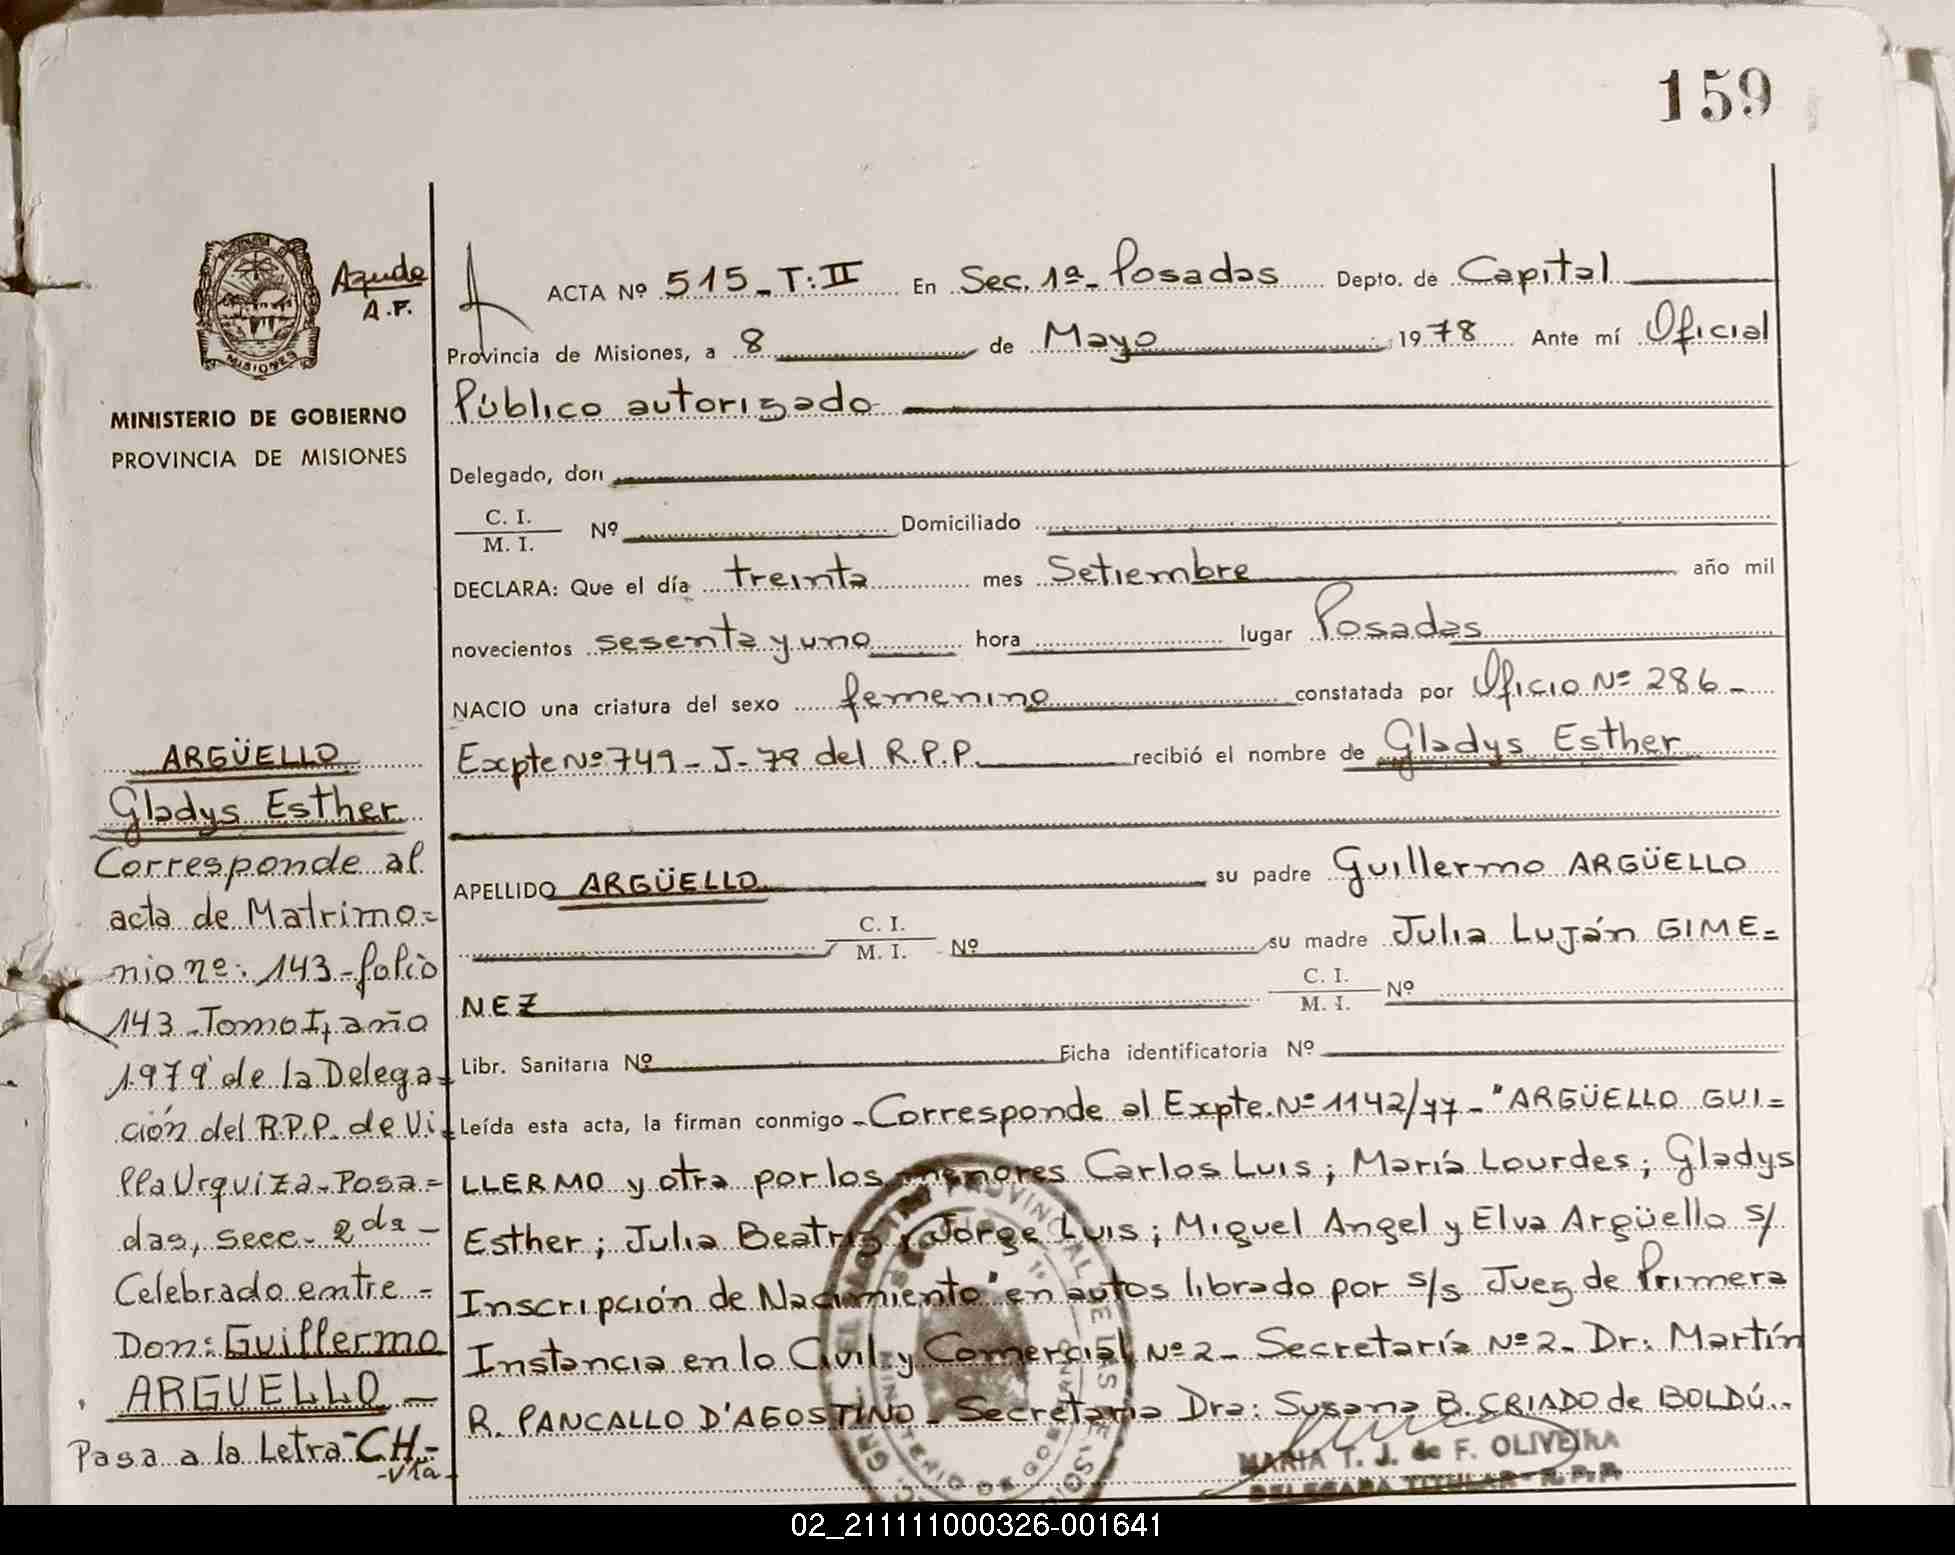 159
Ayude
A.F.
PROVINCIA DE
MISIONES
MINISTERIO DE GOBIERNO
PROVINCIA DE MISIONES
ACTA Nº 515-T:II En Sec. 1ª- Posadas Depto. de Capital
Provincia de Misiones, a 8 de Mayo 1978 Ante mí Oficial
Público autorizado
Delegado, don
C. I.
M. I. Nº Domiciliado
DECLARA: Que el día treinta mes Setiembre año mil
novecientos sesenta y uno hora lugar Posadas
NACIO una criatura del sexo femenino constatada por Oficio Nº 286-
Expte Nº 749-J-78 del R.P.P. recibió el nombre de Gladys Esther
APELLIDO ARGÜELLO su padre Guillermo ARGÜELLO
C. I.
M. I. Nº su madre Julia Luján GIME=
NEZ C. I.
M. I. Nº
Libr. Sanitaria Nº Ficha identificatoria Nº
Leída esta acta, la firman conmigo - Corresponde al Expte. Nº 1142/77 - "ARGÜELLO GUI=
LLERMO y otra por los menores Carlos Luis; María Lourdes; Gladys
Esther; Julia Beatriz; Jorge Luis; Miguel Angel y Elva Argüello s/
Inscripción de Nacimiento" en autos librado por s/s Juez de Primera
Instancia en lo Civil y Comercial Nº 2- Secretaría Nº 2- Dr: Martín
R. PANCALLO D'AGOSTINO - Secretaria Dra: Susana B. CRIADO de BOLDÚ..
MARIA T. J. de F. OLIVEIRA
DELEGADA TITULAR - R.P.P.
ARGÜELLO
Gladys Esther
Corresponde al
acta de Matrimo=
nio nº: 143-folio
143-Tomo I, año
1979 de la Delega=
ción del R.P.P. de Vi=
lla Urquiza-Posa=
das, secc- 2da-
Celebrado entre -
Don: Guillermo
ARGUELLO-
Pasa a la Letra-CH-
-vta-
02_211111000326-001641